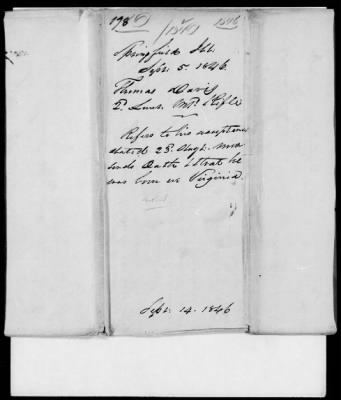 198 1846
Springfield Ill.
Sept: 5. 1846.
Thomas Davis
2. Lieut. Mtd. Rifles
Refers to his acceptance
dated 25. Augt.
sends Oath & that he
was born in Virginia.
Sept. 14. 1846